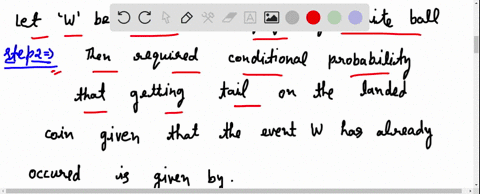 Let 'W' be ite ball
Step2⇒ Then required conditional probability
that getting tail on the landed
coin given that the event W has already
occured is given by.